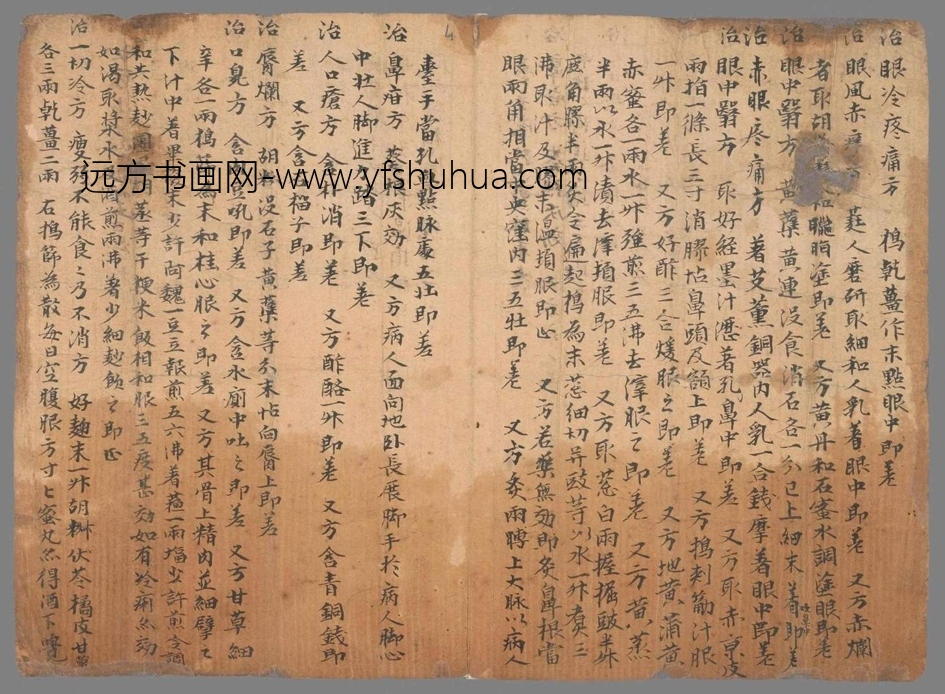 治眼冷疼痛方 搗乹薑作末點眼中即差
治眼風赤 方 莛人磨研取細和人乳著眼中即差 又方赤爛
者取胡 膃脂塗即差 又方黃丹和石蜜水調塗眼即差
眼中翳方 黃蘗黃連沒食消石各一分已上細末 著即差
治赤眼疼痛方 著艾薰銅器內人乳一合錢摩著眼中即差
治眼中翳方 取好經墨汁瀝著孔鼻中即差 又方取赤京皮
兩指一條長三寸消膠怗鼻頭及額上即差 又方搗刺薊汁服
一升即差 又方好酢三合煖服之即差 又方地黃蒲黃
赤蜜各一兩水一升強煎三五沸去滓服之即差 又方黃蒸
半兩以水一升漬去滓頓服即差 又方取葱白兩握掘豉半升
鹿角膠半兩炙令扁起搗為末葱細切并豉等以水一升煮三
沸取汁及末溫頓服即止 又方若藥無効即灸鼻根當
眼兩角相當央窪內三五壯即差 又方灸兩聘上大脉以病人
臺手當孔 點脉處五壯即差
治鼻疳方 灰効 又方病人面向地卧長展脚手於病人脚心
中壯人脚進 踏三下即差
治人口瘡方 含 消即差 又方酢酪一升即差 又方含青銅錢即
差 又方含 榴子即差
治脣爛方 胡粉沒石子黃蘗等分末怗向脣上即差
治口臭方 含 吼即差 又方含水廁中吐之即差 又方甘草細
辛各一兩 為末和桂心服之即差 又方其骨上精肉並細擘之
下汁中著畢 末少許 魏一豆豆報煎五六沸著 一兩塩少許煎令調
和共熱麨 蒸等干粳米飯相和服三五度甚効如有冷痢 為
如渴取漿水 煎兩沸著少細麨飲之即止
治一切冷方 瘦弱不能食之乃不消方 好麹末一升胡椒伏苓橘皮甘草
各三兩乹薑二兩 石搗篩為散每日空腹服方寸匕蜜丸 得酒下
远方书画网-www.yfshuhua.com